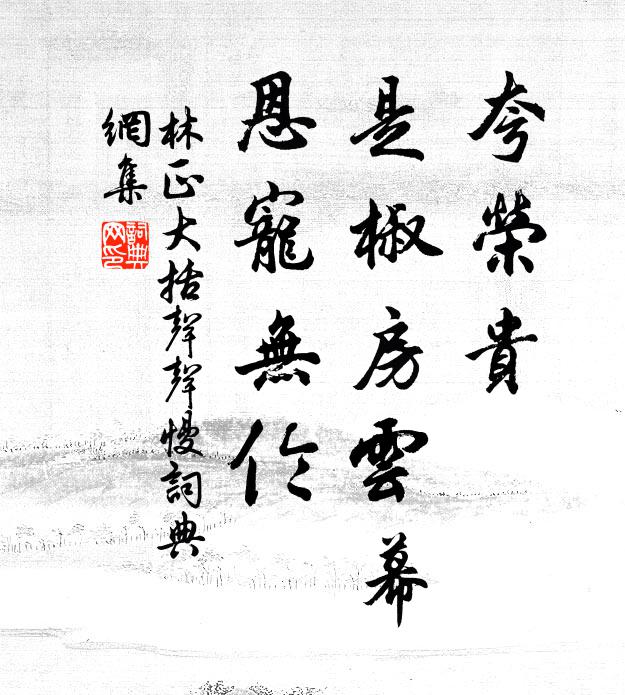 夸榮貴
是椒房雲幕
恩寵無伦
林正大括聲聲慢詞典
網集
詞典
网印